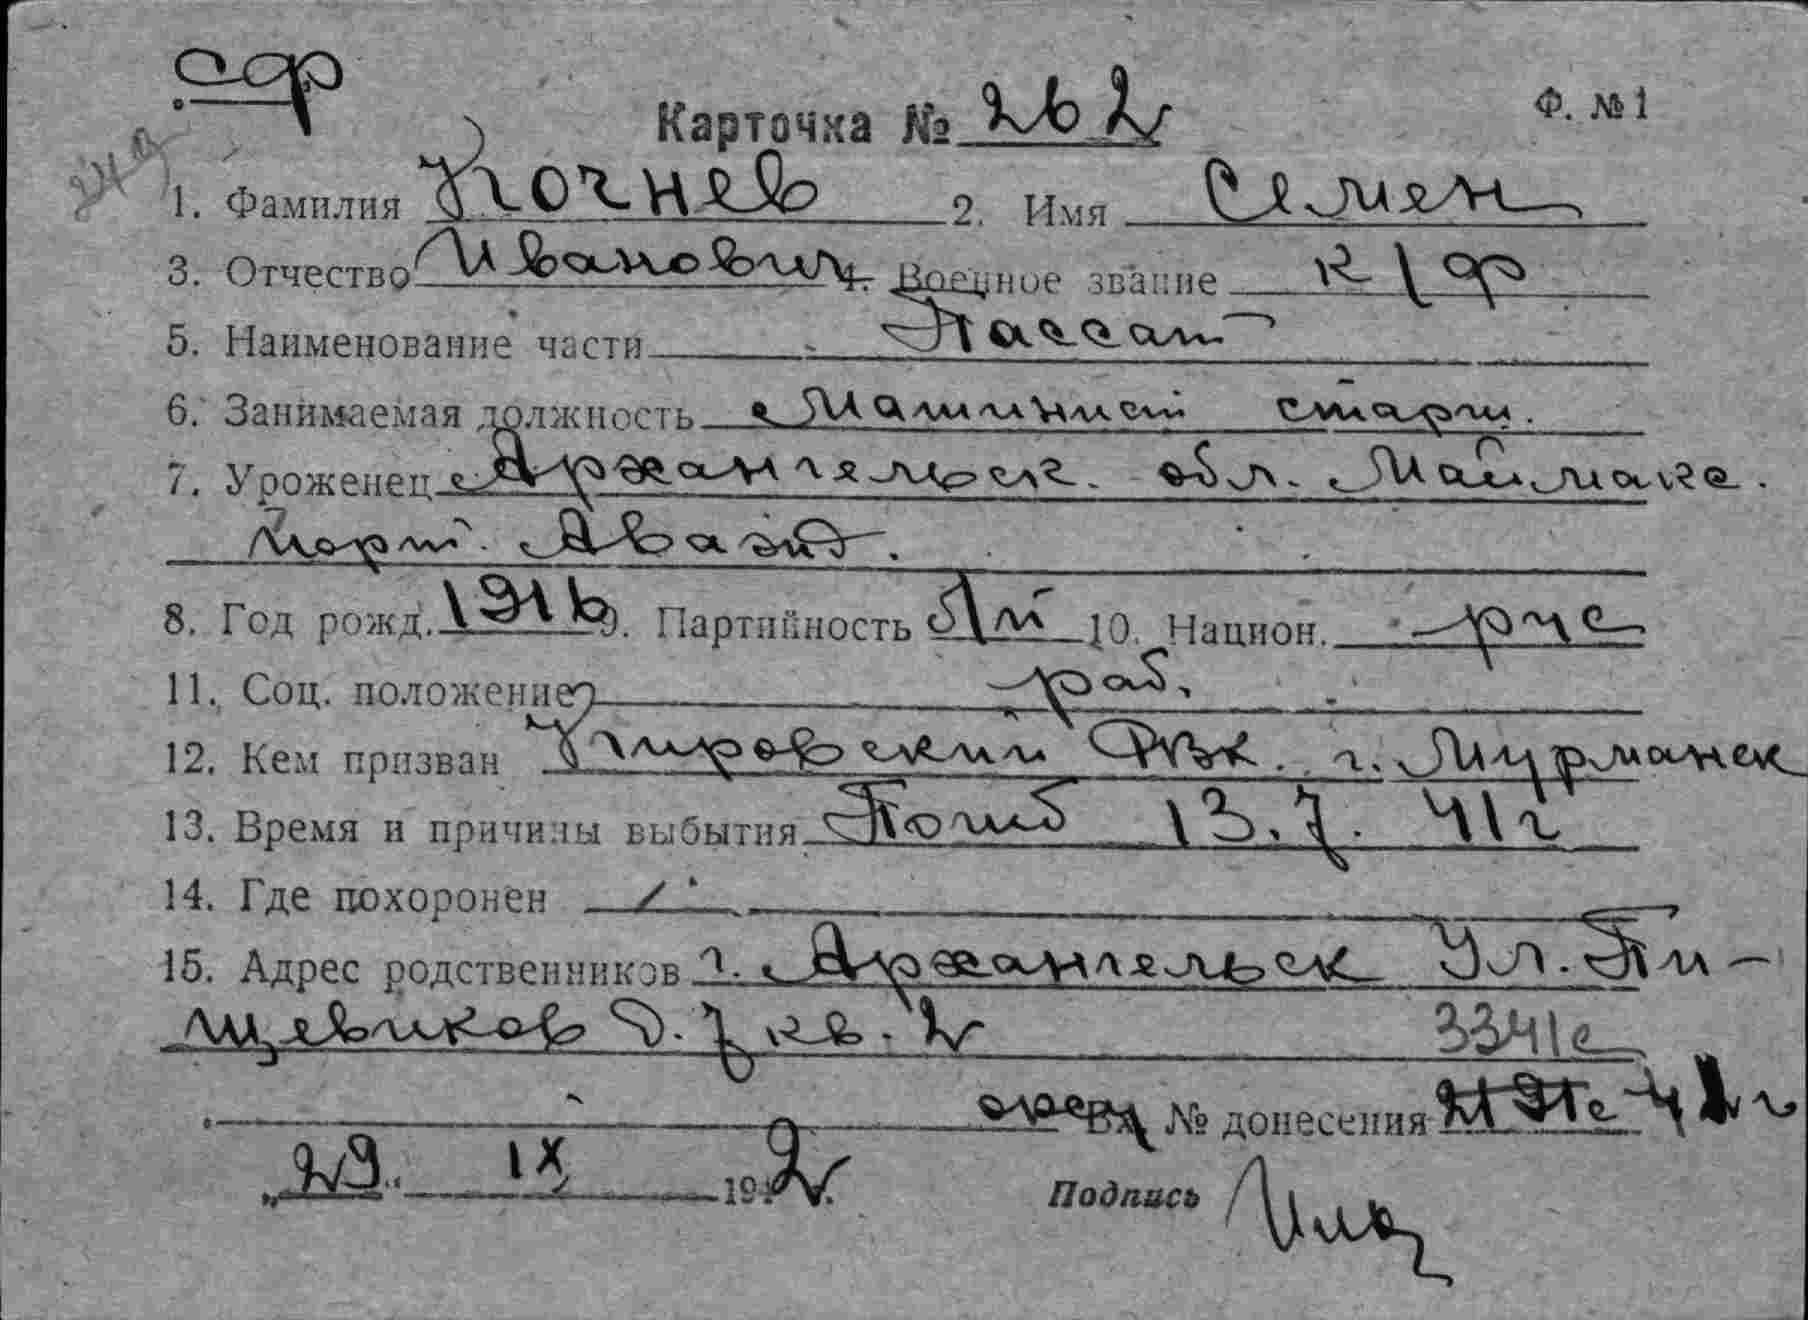 сф
Карточка № 262 Ф. №1
1. Фамилия Кочнев 2. Имя Семен
3. Отчество Иванович 4. Военное звание к/ф
5. Наименование части Пассат
6. Занимаемая должность Машинист старш.
7. Уроженец Архангельск. обл. Маймакс.
порт.
8. Год рожд. 1916 9. Партийность 10. Национ. рус
11. Соц. положение раб.
12. Кем призван Кировский РВК. г. Мурманск
13. Время и причины выбытия Погиб 13.7. 41г
14. Где похоронен /
15. Адрес родственников г. Архангельск Ул. Пи-
щевиков д. 7 кв. 2
3341с
Вх № донесения
„29." IX 1942.
Подпись